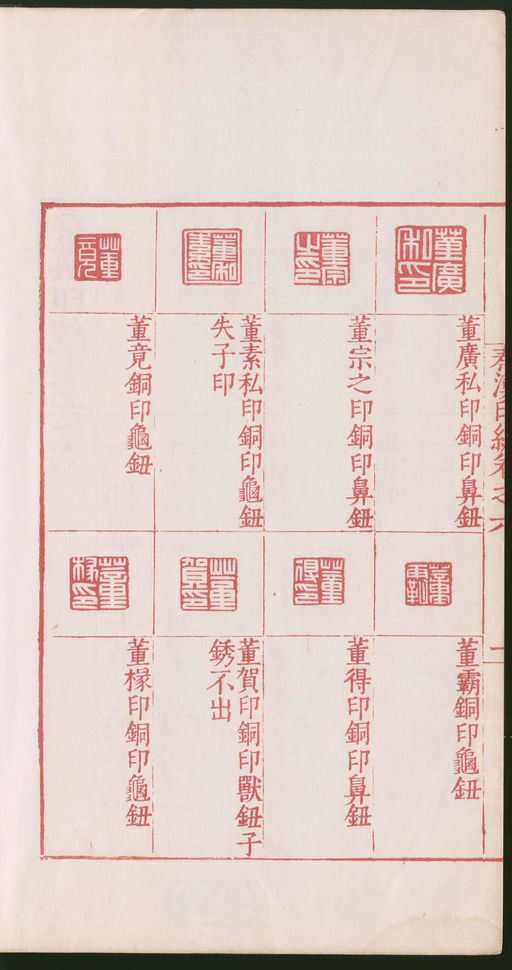 秦漢印統卷之六
二
董廣私印銅印鼻鈕
董宗之印銅印鼻鈕
董素私印銅印龜鈕
失子印
董竟銅印龜鈕
董霸銅印龜鈕
董得印銅印鼻鈕
董賀印銅印獸鈕子
銹不出
董椽印銅印龜鈕